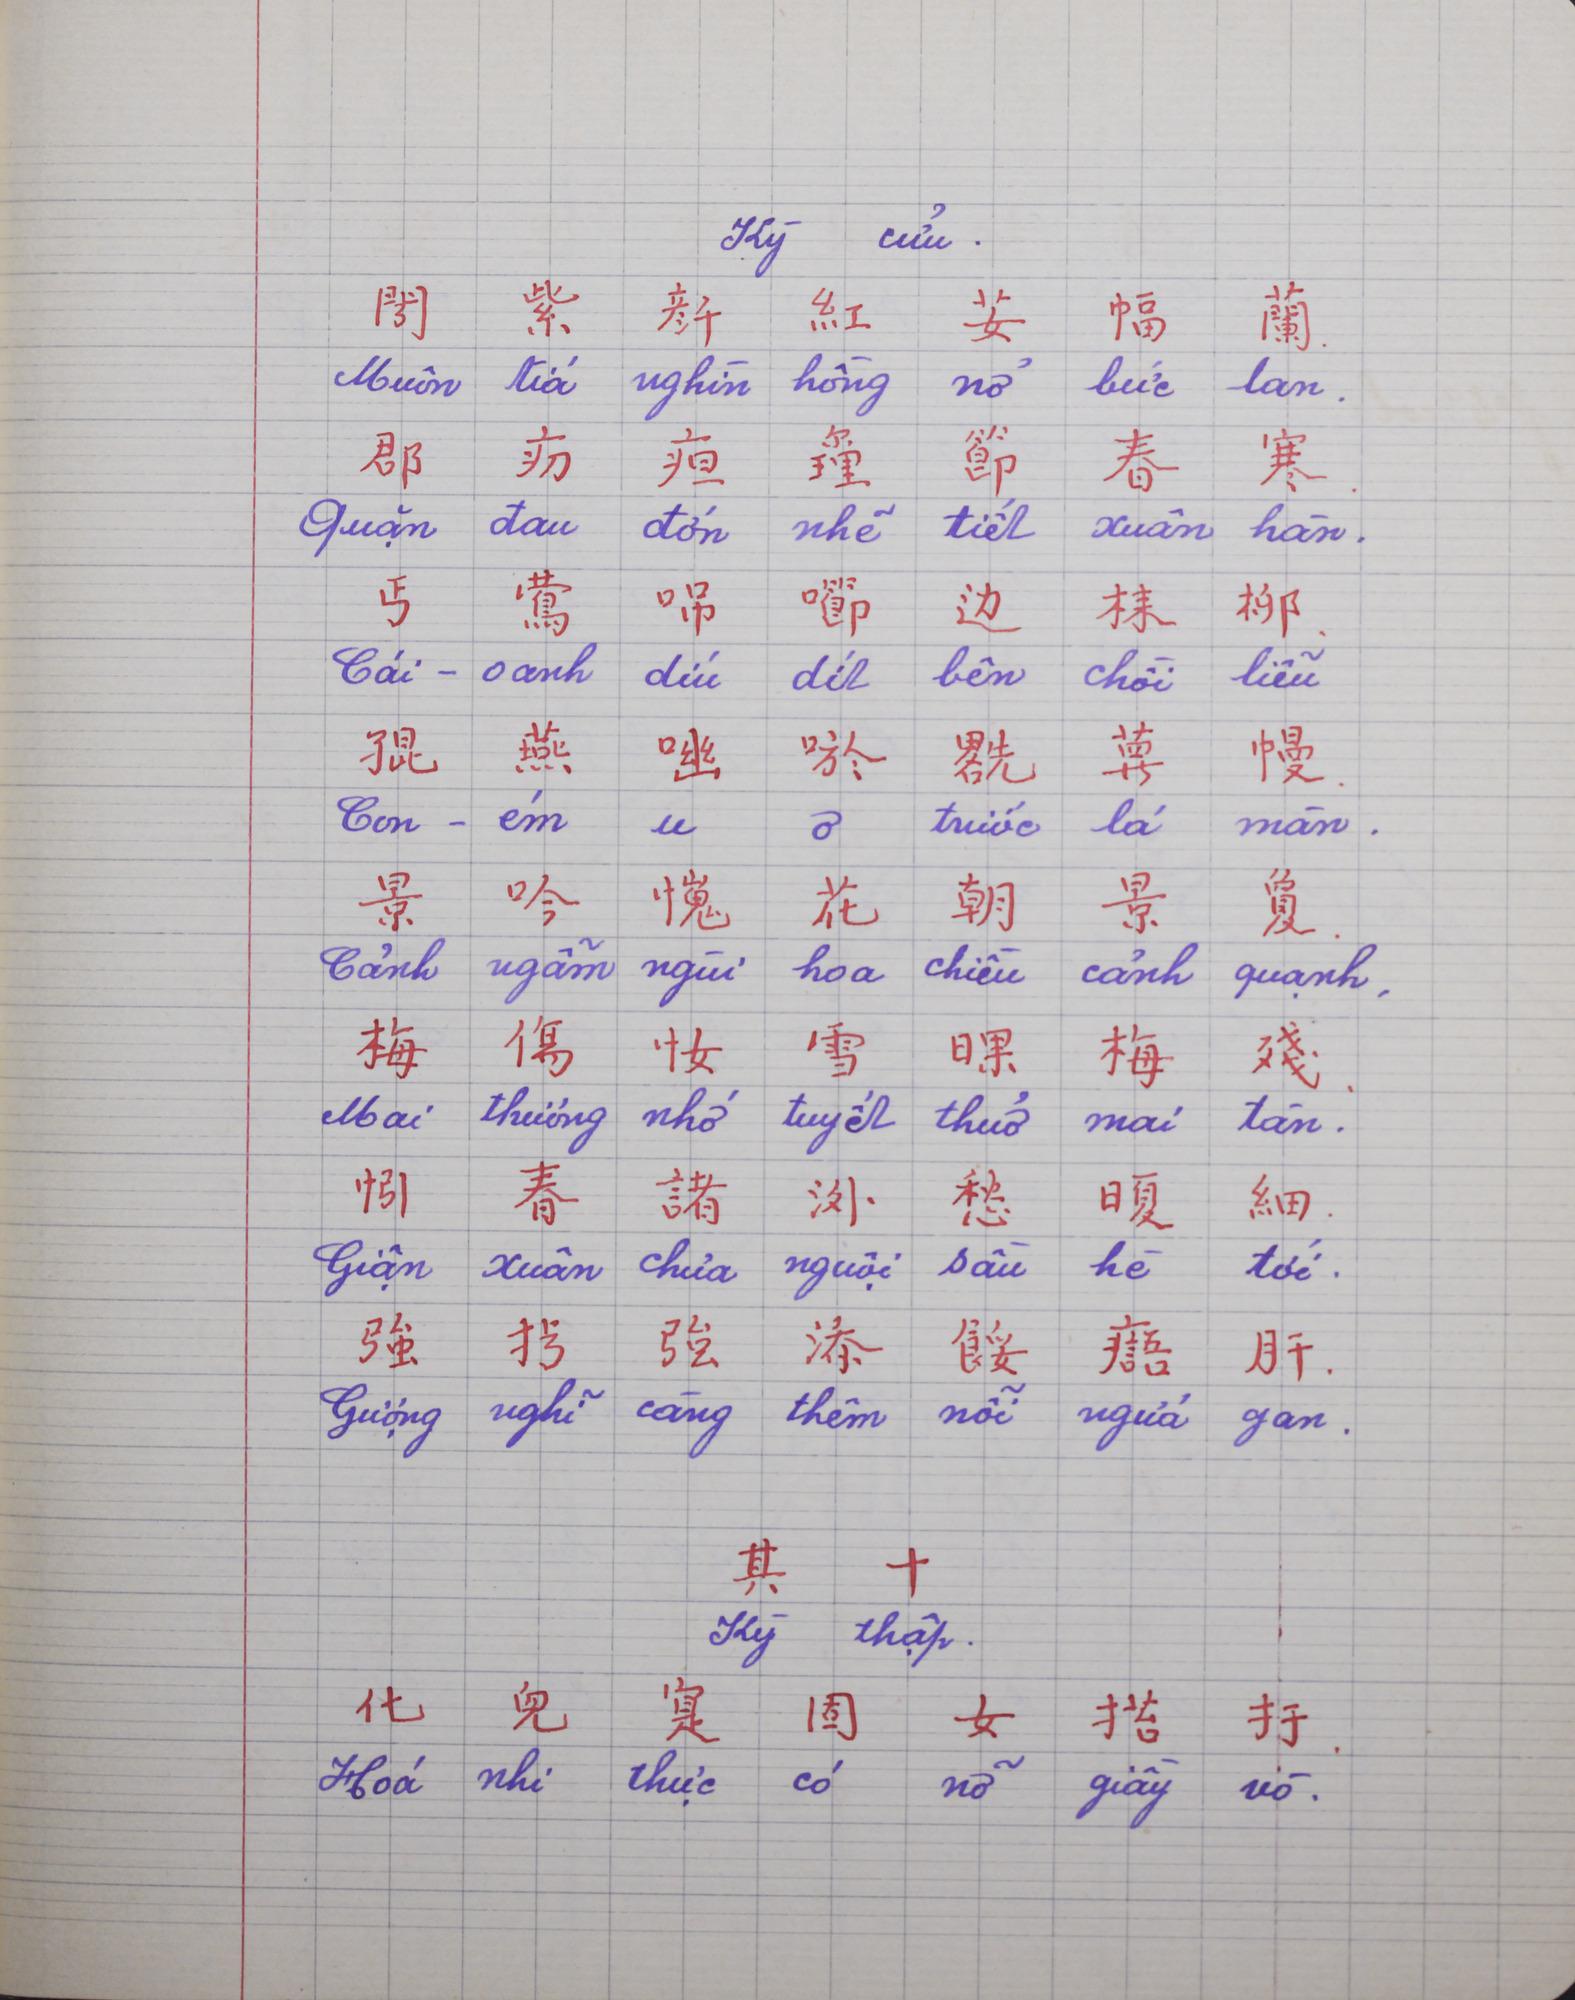 Kỳ cửu.
閍 紫 𠦳 紅 芺 幅 蘭.
Muôn tiá nghìn hồng nở bức lan.
郡 疠 疸 𤨒 節 春 寒.
Quặn đau đớn nhẽ tiết xuân hàn.
丐 鶯 啂 㘉 边 梾 柳.
Cái - oanh díu dít bên chồi liễu
猑 燕 㘭 唹 𠠩 蘿 幔.
Con - én u ơ trước lá màn.
景 吟 𢠐 花 朝 景 敻.
Cảnh ngẫm ngùi hoa chiều cảnh quạnh.
梅 傷 𢖵 雪 𣇞 梅 殘.
Mai thương nhớ tuyết thuở mai tàn.
𢗽 春 諸 汃 愁 夏 細.
Giận xuân chửa nguội sầu hè tới.
強 拐 強 添 餒 𤻭 肝.
Gượng nghĩ càng thêm nỗi ngứa gan.
其 十
Kỳ thập.
化 兒 寔 固 女 揩 扜.
Hoá nhi thực có nỡ giầy vò.